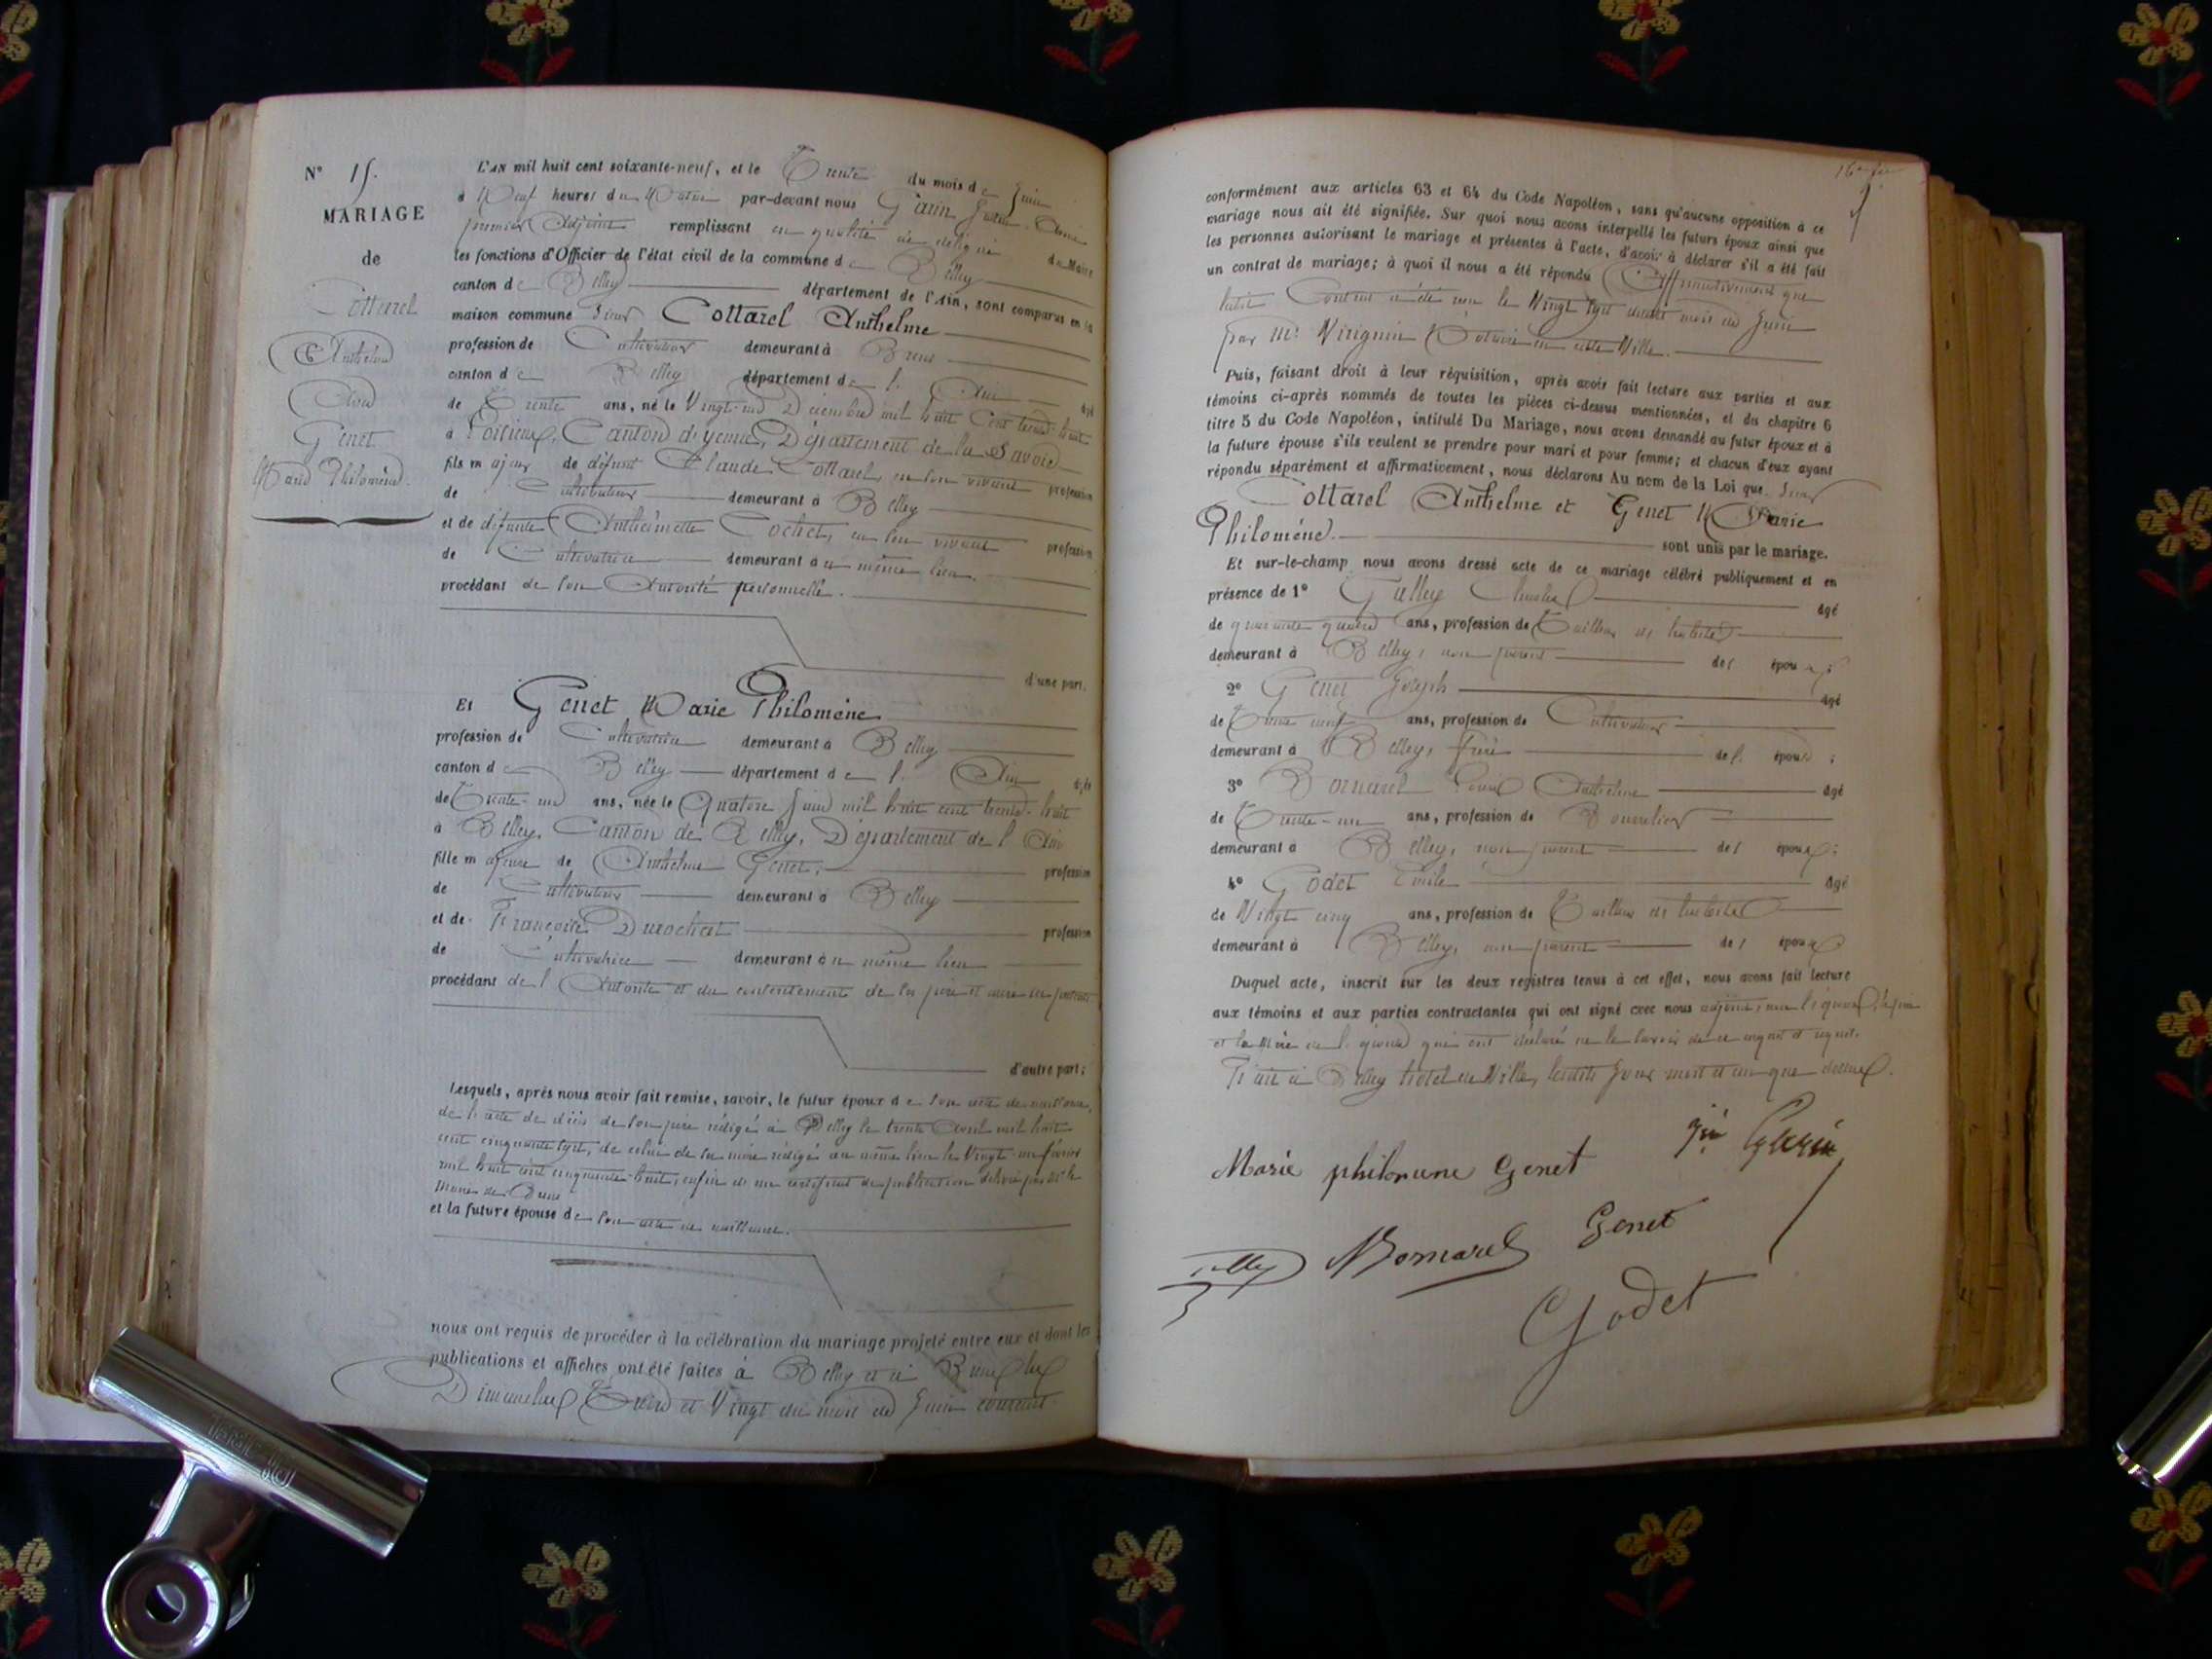 N° 15.
MARIAGE
de
Cottarel
Anthelme
Avec
Genet
Marie Philomène.
L'AN mil huit cent soixante-neuf, et le Trente du mois de Juin
à Neuf heures du Matin par-devant nous Garin
premier Adjoint remplissant en qualité de délégué du Maire
les fonctions d'Officier de l'état civil de la commune de Belley
canton de Belley département de l'Ain, sont comparus en la
maison commune Sieur Cottarel Anthelme
profession de Cultivateur demeurant à Brens
canton de Belley département de l' Ain âgé
de Trente ans, né le Vingt-un Décembre mil huit Cent trente-huit
à Loisieux, Canton d'yenne, Département de la Savoie
fils majeur de défunt Claude Cottarel, en son vivant profession
de Cultivateur demeurant à Belley
et de défunte Anthelmette Cochet, en son vivant profession
de Cultivatrice demeurant au même lieu.
procédant de son Autorité personnelle.
d'une part.
Et Genet Marie Philomène
profession de Cultivatrice demeurant à Belley
canton de Belley département de l' Ain âgée
de Trente-un ans, née le Quatorze Juin mil huit cent trente-huit
à Belley, Canton de Belley, Département de l'Ain
fille majeure de Anthelme Genet, profession
de Cultivateur demeurant à Belley
et de Françoise Durochat profession
de Cultivatrice demeurant au même lieu
procédant de l'Autorité et du consentement de ses père et mère ici présents
d'autre part;
Lesquels, après nous avoir fait remise, savoir, le futur époux de son acte de naissance,
de l'acte de décès de son père rédigé à Belley le trente Avril mil huit
cent cinquante sept, de celui de sa mère rédigé au même lieu le Vingt-un février
mil huit cent cinquante-huit, enfin d'un certificat de publication délivré par Mr le
Maire de Brens
et la future épouse de son acte de naissance.
nous ont requis de procéder à la célébration du mariage projeté entre eux et dont les
publications et affiches ont été faites à Belley et à Brens les
Dimanches Treize et Vingt du mois de Juin courant
conformément aux articles 63 et 64 du Code Napoléon, sans qu'aucune opposition à ce
mariage nous ait été signifiée. Sur quoi nous avons interpellé les futurs époux ainsi que
les personnes autorisant le mariage et présentes à l'acte, d'avoir à déclarer s'il a été fait
un contrat de mariage; à quoi il nous a été répondu Affirmativement que
ledit Contrat a été reçu le Vingt Sept dudit mois de Juin
par Me Virignin Notaire en cette Ville.
Puis, faisant droit à leur réquisition, après avoir fait lecture aux parties et aux
témoins ci-après nommés de toutes les pièces ci-dessus mentionnées, et du chapitre 6
titre 5 du Code Napoléon, intitulé Du Mariage, nous avons demandé au futur époux et à
la future épouse s'ils veulent se prendre pour mari et pour femme; et chacun d'eux ayant
répondu séparément et affirmativement, nous déclarons Au nom de la Loi que Sieur
Cottarel Anthelme et Genet Marie
Philomène. sont unis par le mariage.
Et sur-le-champ nous avons dressé acte de ce mariage célébré publiquement et en
présence de 1° Tulley Charles âgé
de quarante quatre ans, profession de Tailleur d'habits
demeurant à Belley, non parent des époux;
2° Genet Joseph âgé
de Trente neuf ans, profession de Cultivateur
demeurant à Belley, frère de l' épouse;
3° Bornarel Louis Anthelme âgé
de Trente-un ans, profession de Bourrelier
demeurant à Belley, non parent des époux;
4° Godet Emile âgé
de Vingt cinq ans, profession de Tailleur d'habits
demeurant à Belley, non parent des époux
Duquel acte, inscrit sur les deux registres tenus à cet effet, nous avons fait lecture
aux témoins et aux parties contractantes qui ont signé avec nous adjoint, non l'époux, le père
et la Mère de l'épouse qui ont déclaré ne le savoir de ce enquis et requis.
Fait à Belley hotel de Ville, lesdits Jour mois et an que dessus.
Garin
Marie philomene Genet
Genet
Bornarel
Tulley
Godet